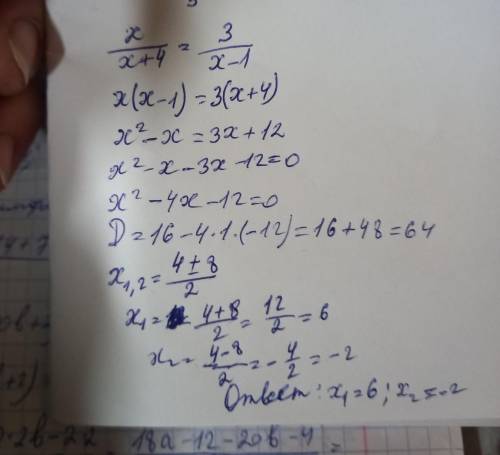 x/(x+4) = 3/(x-1)
x(x-1)=3(x+4)
x²-x=3x+12
x²-x-3x-12=0
x²-4x-12=0
D=16-4·1·(-12)=16+48=64
x₁,₂=(4±8)/2
x₁= (4+8)/2=12/2=6
x₂=(4-8)/2=-4/2=-2
Ответ: x₁=6; x₂=-2
18a-12-20b-4